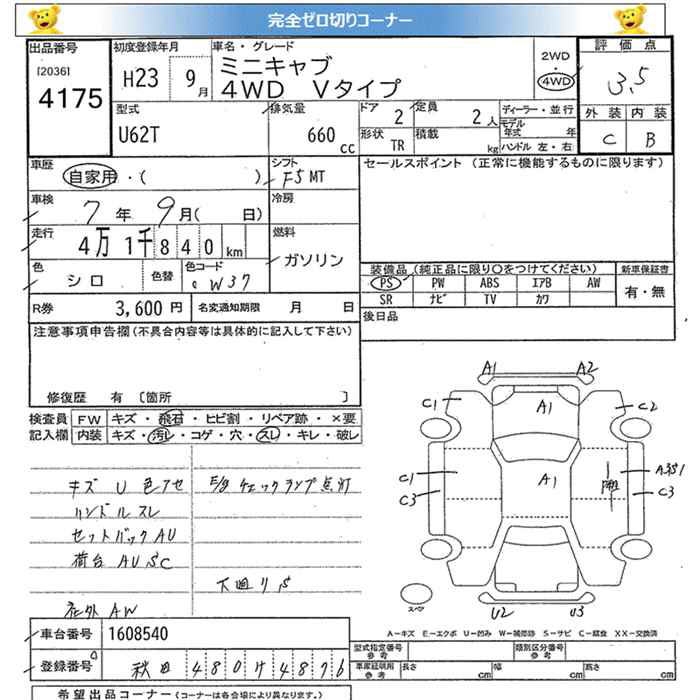 完全ゼロ切りコーナー
出品番号
[2036]
4175
初度登録年月
H23 9月
車名・グレード
ミニキャブ
4WD Vタイプ
2WD
4WD
評価点
3.5
外装 内装
C B
型式
U62T
排気量
660 cc
ドア 2
定員 2人
形状 TR
積載 kg
ディーラー・並行
モデル年式 年
ハンドル 左・右
車歴
自家用・( )
シフト
F5 MT
セールスポイント (正常に機能するものに限ります)
車検
7年 9月( 日)
冷房
走行
4万 1千 840 km
燃料
ガソリン
色
シロ
色替
色コード
W37
装備品 (純正品に限り〇をつけてください)
新車保証書
PS PW ABS エアB AW
SR ナビ TV カワ
有・無
R券 3,600円
名変通知期限 月 日
後日品
注意事項申告欄 (不具合内容等は具体的に記入して下さい)
修復歴 有 [箇所 ]
検査員
記入欄
FW キズ・飛石・ヒビ割・リペア跡・×要
内装 キズ・汚レ・コゲ・穴・スレ・キレ・破レ
キズ U 色アセ
ハンドルスレ
セットバック AU
荷台 AUSC
社外 AW
E/g チェックランプ点灯
下廻りS
A1 A2
C1 A1 C2
C1 A1
C3 C3
U2 U3
スペア
A-キズ E-エクボ U-凹み W-補修跡 S-サビ C-腐食 XX-交換済
車台番号 1608540
登録番号 秋田 480 け 4876
型式指定番号
参考
類別区分番号
参考
車庫証明用
参考
長さ cm 幅 cm 高さ cm
希望出品コーナー (コーナーは各会場により異なります。)